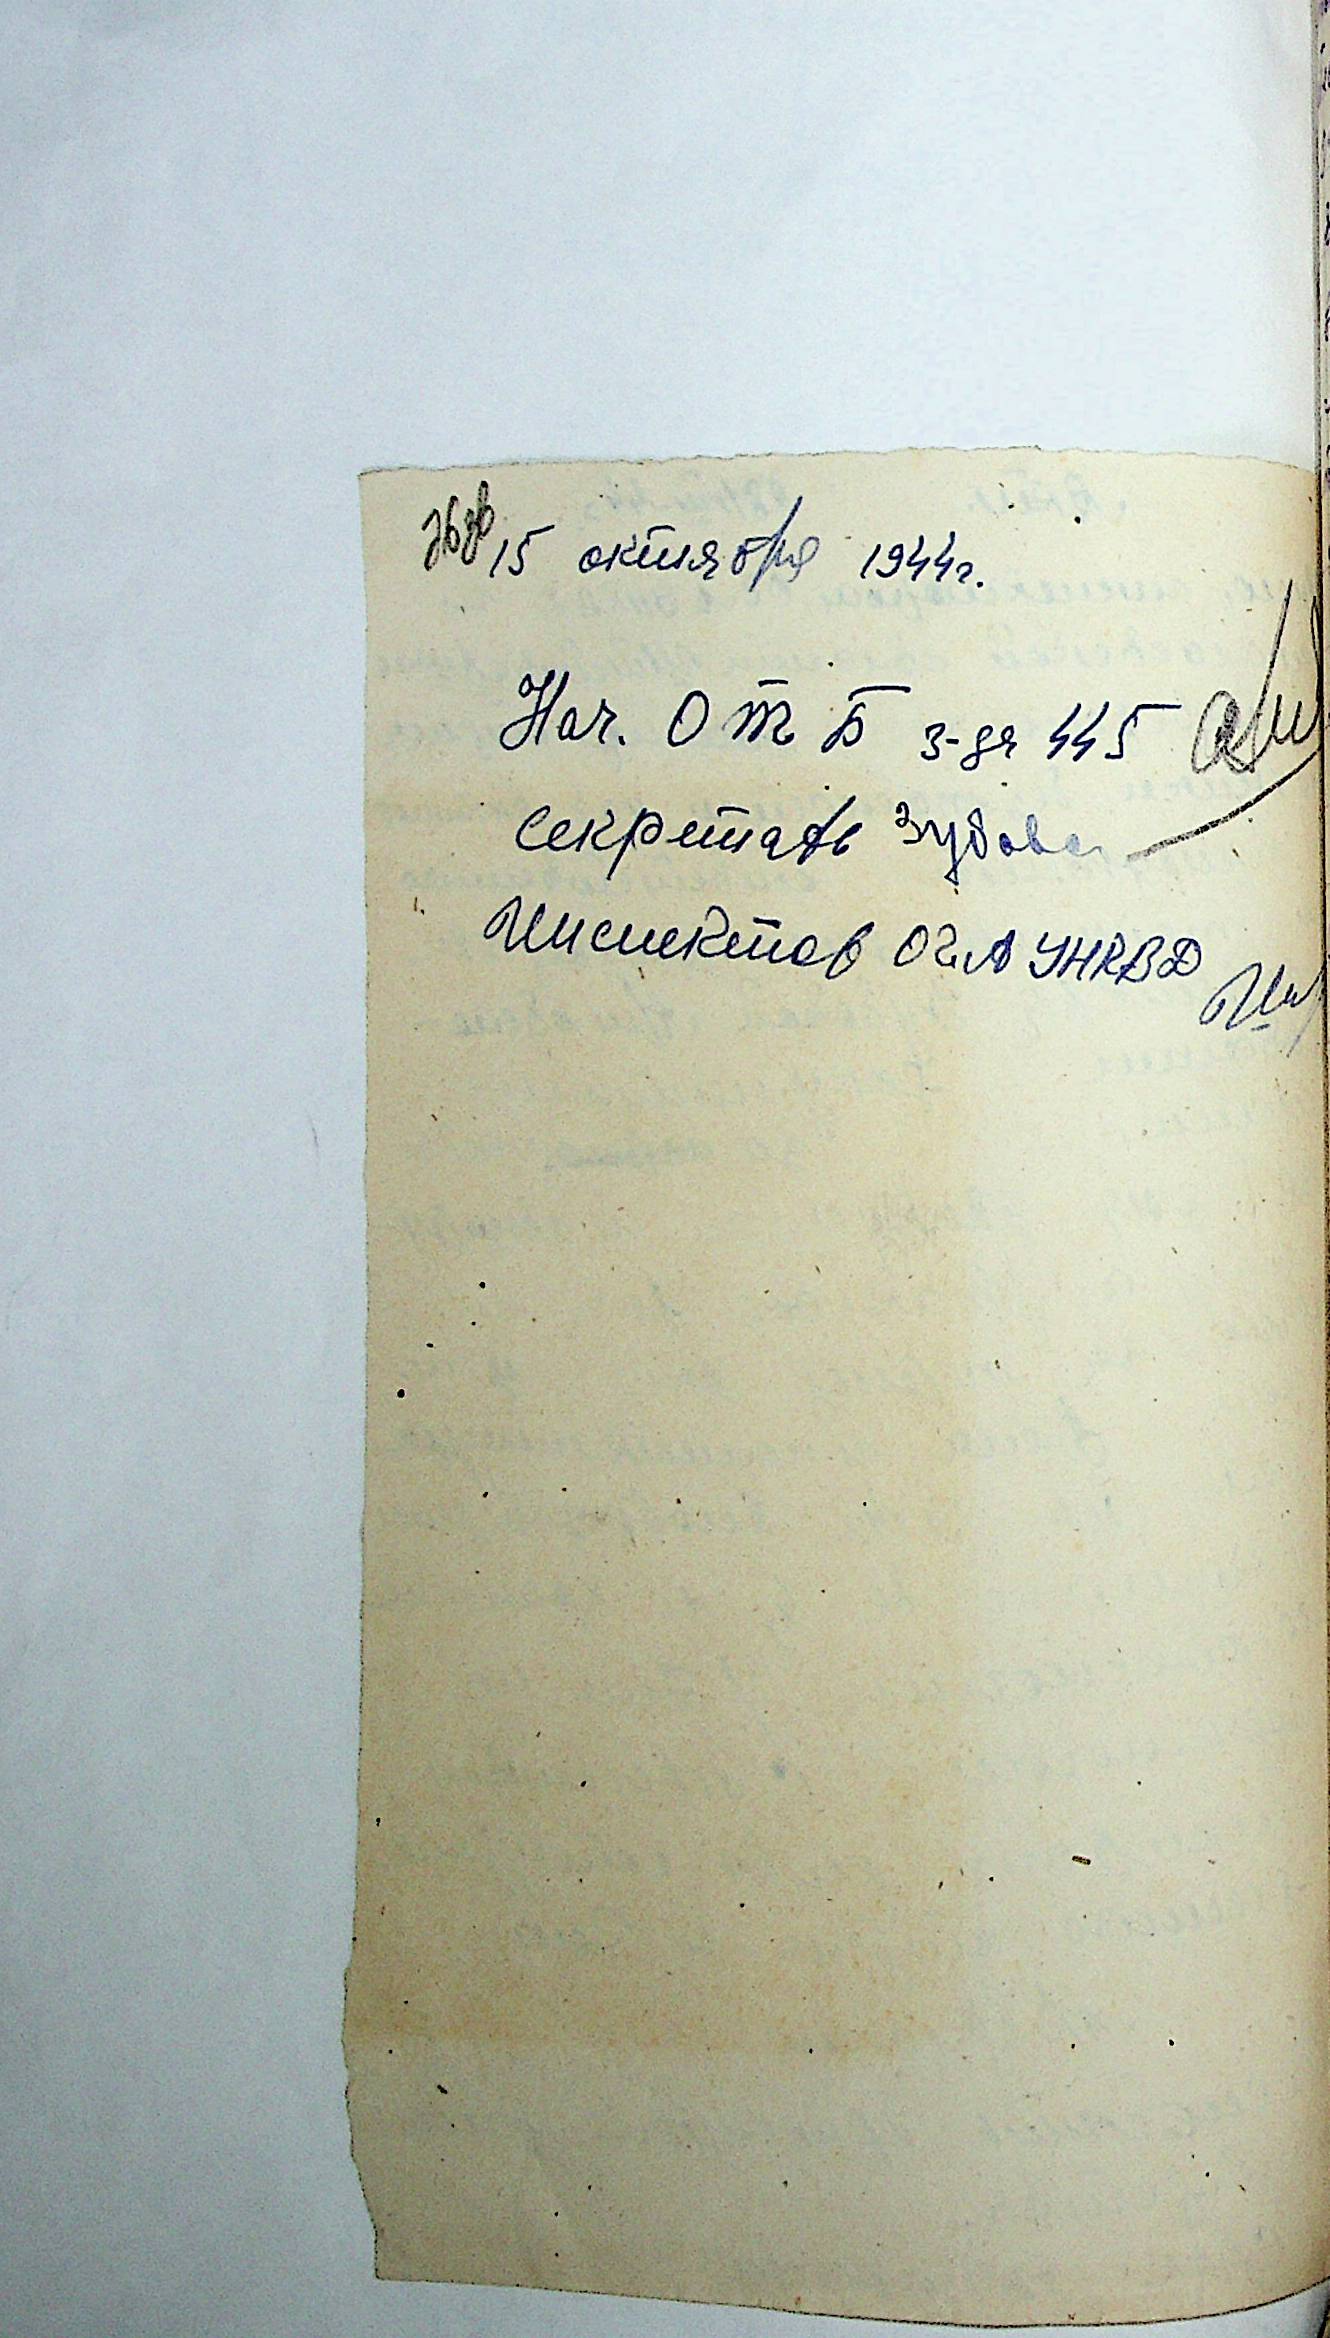 15 октября 1944г.
Нач. ОТБ з-да 445
Секретарь Зубова
Инспектор ОЧА УНКВД